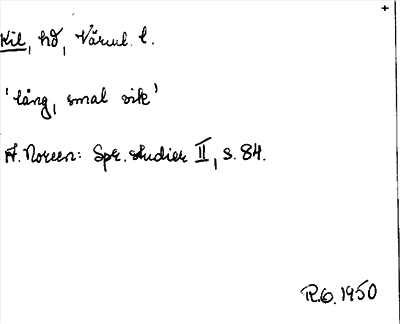 Kil, hd, Värml. l.
'lång, smal vik'
A. Noreen: Spr. studier II, s. 84.
R.G. 1950